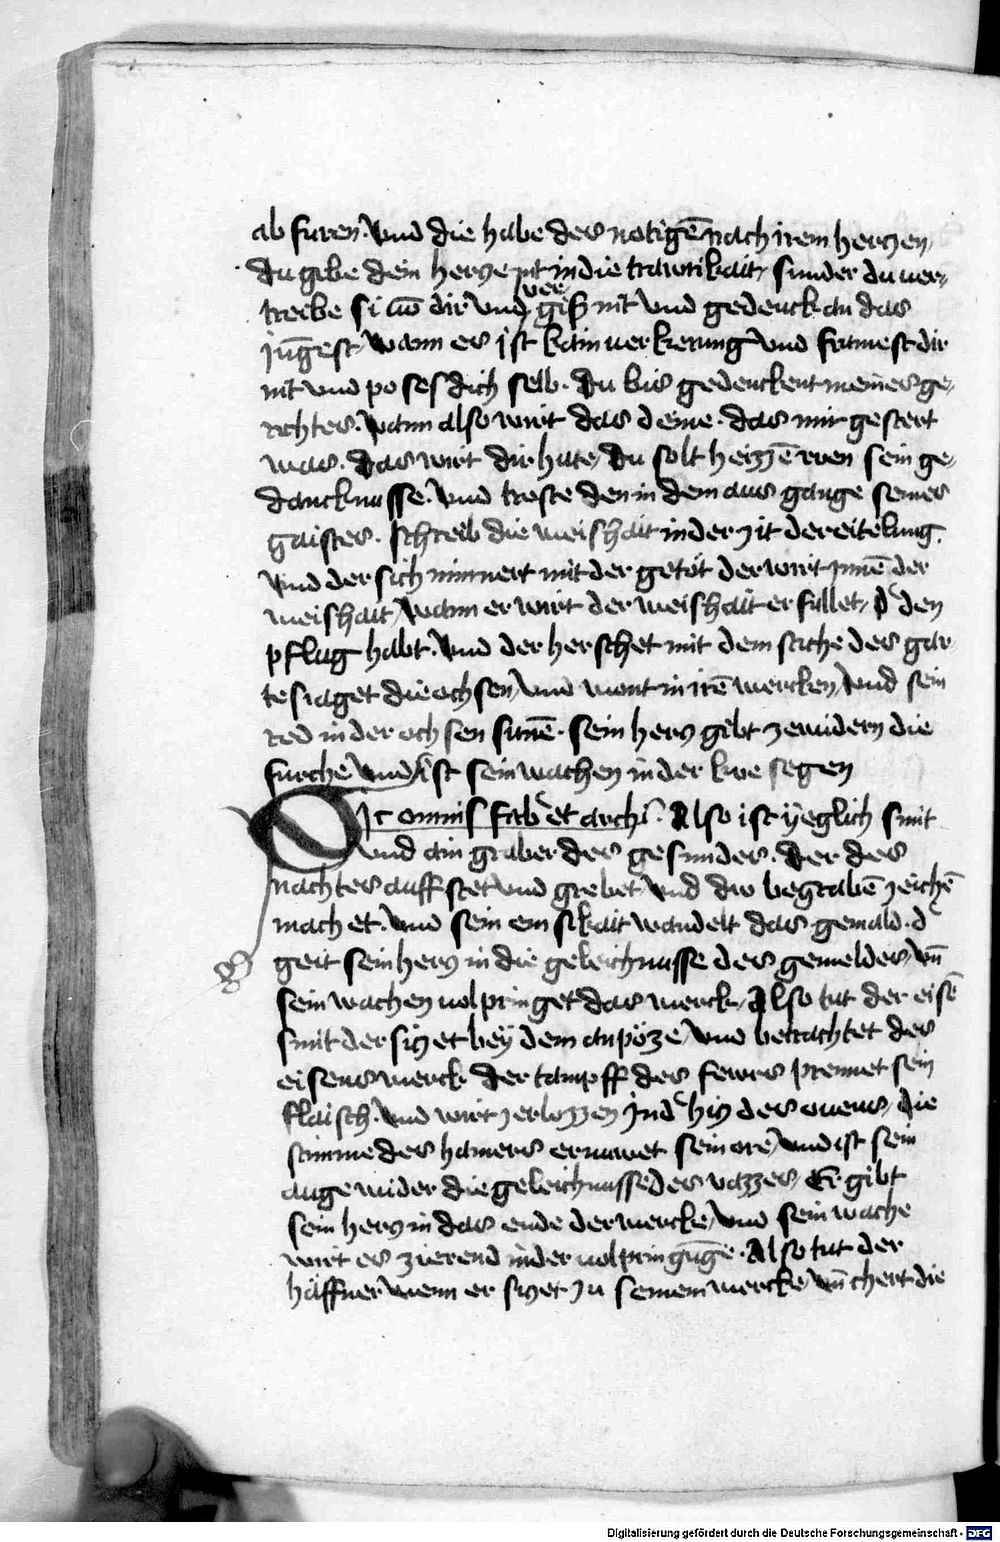 ab furen. Vnd die habe des notigē nach irem herczen
du gebe dein hercze nit in die trawrikait, sunder du uer,
treibe si vō dir vnd ver giß nit vnd gedenck an das
jūgest, wann es ist kain uerkerung vnd frumest dir
nit vnd po sest dich selb. du bis gedenckent meines ge,
richtes. wann also wirt das deine. das mir gestert
was. das wirt dir hute, du solt heizzē rven sein ge,
dancknusse. vnd troste den in dem aus gange seines
gaistes. schreib die weishait in der zit der eitelung.
vnd der sich minnert mit der getöt der wirt innē der
weishait, wann er wirt der weishait erfullet, d den
pflug habt. vnd der herschet mit dem stiche des gar
tes iaget die ochsen, vnd wont in irē wercken, vnd sein
red in der ochsen sunē. sein hercz gibt ze widern die
furche vnd ist sein wachen in der kve segen
Sic omnis fab et archi. Also ist yeglich smit
vnd ain graber des gesmides. der des
nachtes auffstet vnd grebet vnd die begrabē zeichē
machet. vnd sein emsikait wandelt das gemäld. d
geit sein hercz in die geleichnusse des gemeldes, vn̄
sein wachen uolpringet das werck, Also tut der eisē
smit der siczet bey dem anpöze, vnd betrachtet des
eisens werck. der tampff des fewrs prennet sein
flaisch. vnd wirt zerlozzen in d hicz des ovens, die
stimme des hamers ernuwet sein ore, vnd ist sein
auge wider die geleichnusse des vazzes, Er gibt
sein hercz in das ende der wercke, vnd sein wache
wirt es zierend in der uolpringūge. Also tut der
haffner wenn er siczet zu seinem wercke, vn̄ chert die
Digitalisierung gefördert durch die Deutsche Forschungsgemeinschaft - DFG